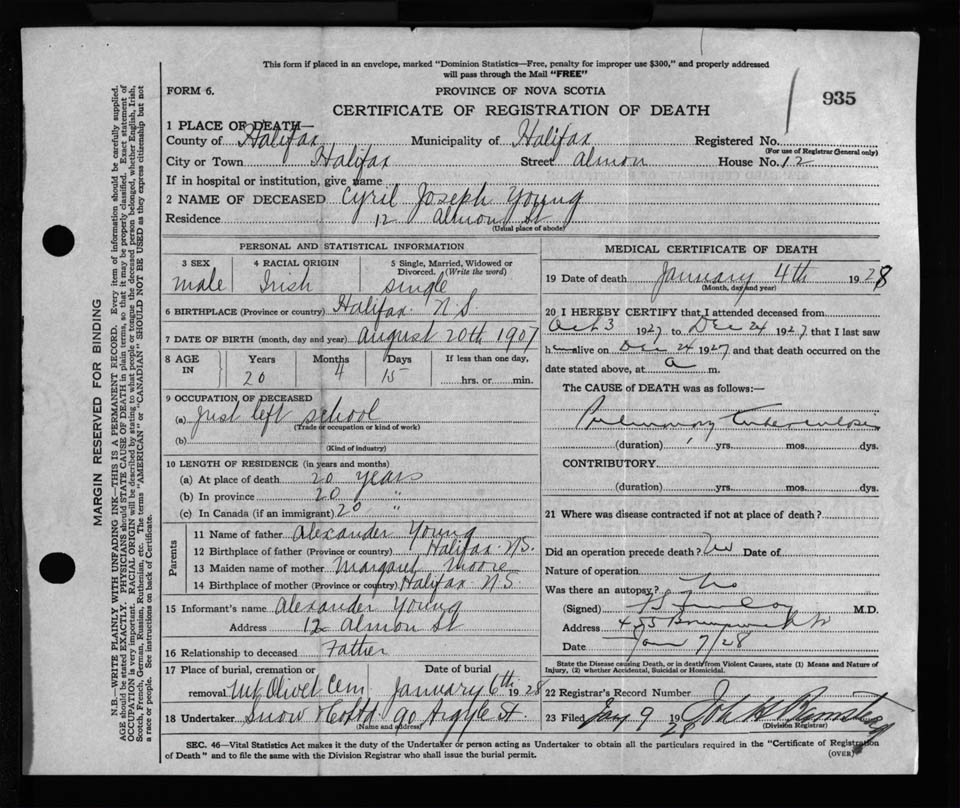 This form if placed in an envelope, marked "Dominion Statistics—Free, penalty for improper use $300," and properly addressed
will pass through the Mail "FREE"
FORM 6.
PROVINCE OF NOVA SCOTIA
935
CERTIFICATE OF REGISTRATION OF DEATH
1 PLACE OF DEATH—
County of Halifax Municipality of Halifax Registered No.
(For use of Registrar General only)
City or Town Halifax Street Almon House No. 12
If in hospital or institution, give name
2 NAME OF DECEASED Cyril Joseph Young
Residence 12 Almon St
(Usual place of abode)
PERSONAL AND STATISTICAL INFORMATION
3 SEX 4 RACIAL ORIGIN 5 Single, Married, Widowed or
Divorced. (Write the word)
male Irish single
6 BIRTHPLACE (Province or country) Halifax N.S.
7 DATE OF BIRTH (month, day and year) August 20th 1907
8 AGE IN Years Months Days If less than one day,
20 4 15 hrs. or min.
9 OCCUPATION OF DECEASED
(a) Just left school
(Trade or occupation or kind of work)
(b)
(Kind of industry)
10 LENGTH OF RESIDENCE (in years and months)
(a) At place of death 20 years
(b) In province 20 "
(c) In Canada (if an immigrant) 20 "
Parents
11 Name of father Alexander Young
12 Birthplace of father (Province or country) Halifax N.S.
13 Maiden name of mother Margaret Moore
14 Birthplace of mother (Province or country) Halifax N.S.
15 Informant's name Alexander Young
Address 12 Almon St
16 Relationship to deceased Father
17 Place of burial, cremation or Date of burial
removal Mt Olivet Cem January 6th 1928
18 Undertaker Snow & Co Ltd 90 Argyle St.
(Name and address)
MEDICAL CERTIFICATE OF DEATH
19 Date of death January 4th 1928
(Month, day and year)
20 I HEREBY CERTIFY that I attended deceased from
Oct 3 1927 to Dec 24 1927 that I last saw
h alive on Dec 24 1927 and that death occurred on the
date stated above, at a m.
The CAUSE OF DEATH was as follows:—
Pulmonary Tuberculosis
(duration) yrs. mos. dys.
CONTRIBUTORY
(duration) yrs. mos. dys.
21 Where was disease contracted if not at place of death?
Did an operation precede death? No Date of
Nature of operation
Was there an autopsy? No
(Signed) M.D.
Address 455
Date Jan 7/28
State the Disease causing Death, or in death from Violent Causes, state (1) Means and Nature of
Injury, (2) whether Accidental, Suicidal or Homicidal.
22 Registrar's Record Number
23 Filed Jan 9 1928
(Division Registrar)
SEC. 46—Vital Statistics Act makes it the duty of the Undertaker or person acting as Undertaker to obtain all the particulars required in the "Certificate of Registration
of Death" and to file the same with the Division Registrar who shall issue the burial permit.
(OVER)
MARGIN RESERVED FOR BINDING
N.B.—WRITE PLAINLY WITH UNFADING INK—THIS IS A PERMANENT RECORD. Every item of information should be carefully supplied.
AGE should be stated EXACTLY. PHYSICIANS should STATE CAUSE OF DEATH in plain terms, so that it may be properly classified. Exact statement of
OCCUPATION is very important. RACIAL ORIGIN will be described by stating to what people or tongue the deceased person belonged, whether English, Irish,
Scotch, French, German, Russian, Ruthenian, etc. The terms "AMERICAN" or "CANADIAN" SHOULD NOT BE USED as they express citizenship but not
a race or people. See instructions on back of Certificate.